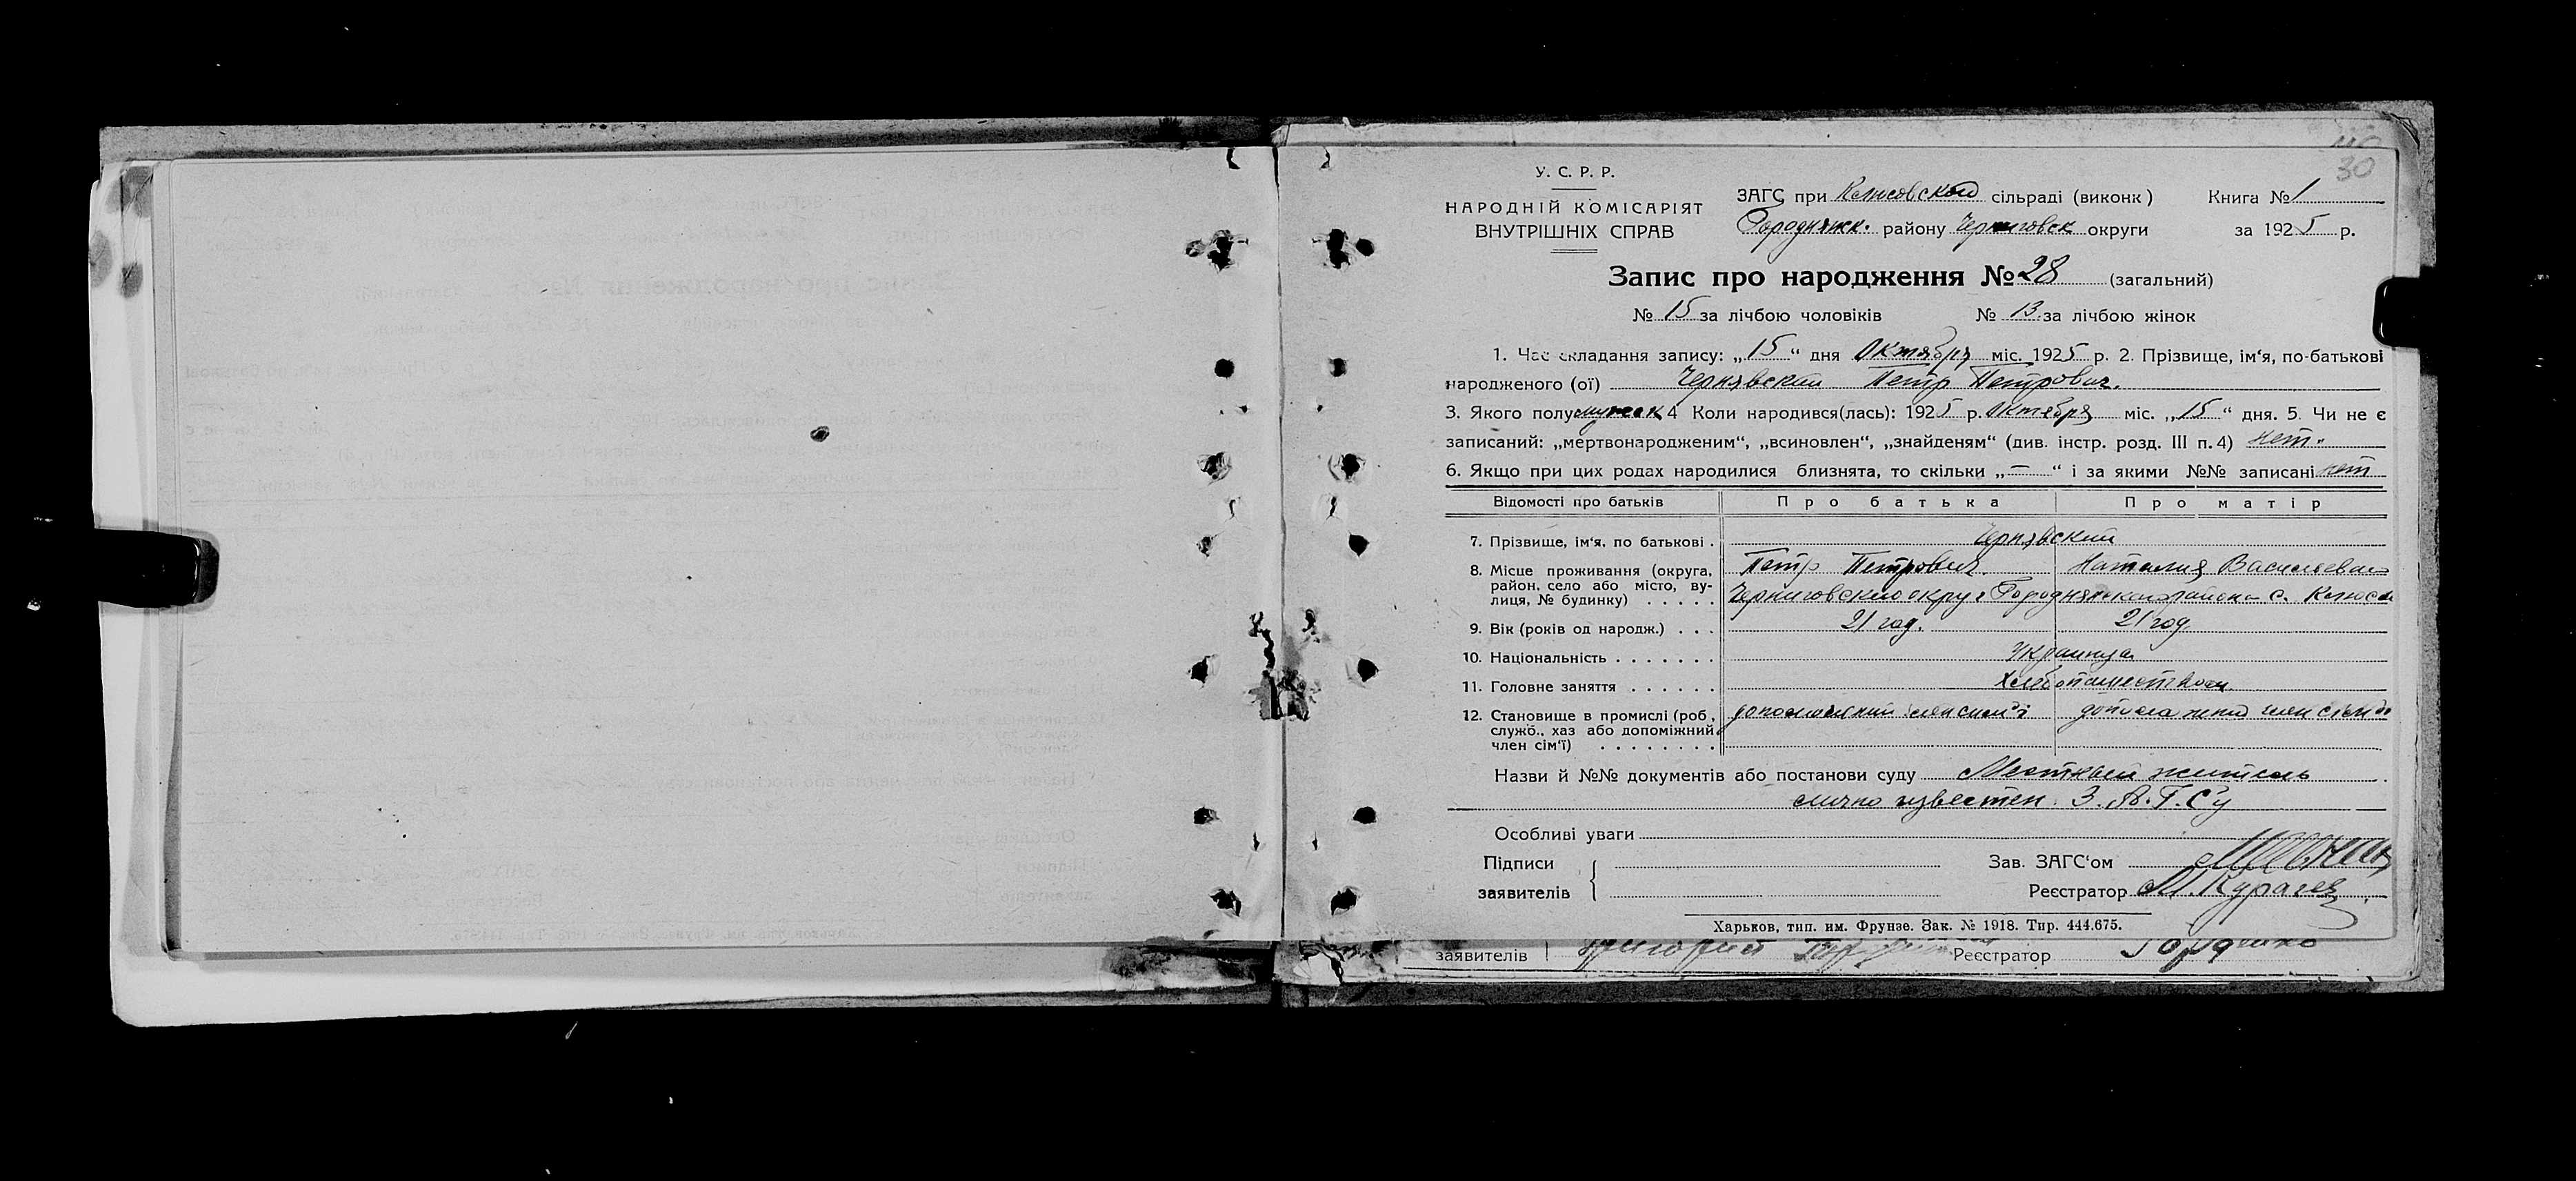 30
У. С. Р. Р.
НАРОДНІЙ КОМІСАРІЯТ
ВНУТРІШНІХ СПРАВ
ЗАГС при Клюсовской сільраді (виконк) Книга № 1
Городнянск. району Черниговск округи за 1925 р.
Запис про народження № 28 (загальний)
№ 15 за лічбою чоловіків № 13 за лічбою жінок
1. Час складання запису: „15“ дня Октября міс. 1925 р. 2. Прізвище, ім‘я, по-батькові
народженого (ої) Чернявский Петр Петрович.
3. Якого полу мужск 4 Коли народився(лась): 1925 р. Октября міс. „15“ дня. 5. Чи не є
записаний: „мертвонародженим“, „всиновлен“, „знайденям“ (див. інстр. розд. III п. 4) нет.
6. Якщо при цих родах народилися близнята, то скільки „—“ і за якими №№ записані нет
Відомості про батьків Про батька Про матір
7. Прізвище, ім‘я, по батькові . Чернявский
Петр Петрович Наталия Васильевна
8. Місце проживання (округа, район, село або місто, вулиця, № будинку) . . . . . Черниговский округ Городнянского района с. Клюсы
9. Вік (років од народж.) . . . 21 год. 21 год
10. Національність . . . . . . . Украинца
11. Головне заняття . . . . . . Хлебопашеством
12. Становище в промислі (роб., служб., хаз або допоміжний член сім‘ї) . . . . . . . . член сім'ї член
Назви й №№ документів або постанови суду Местный житель
лично известен З.А.Г.С'у
Особливі уваги
Підписи
заявителів
Зав. ЗАГС‘ом
Реєстратор М.
Харьков, тип. им. Фрунзе. Зак. № 1918. Тир. 444.675.
заявителів Григорий Реєстратор